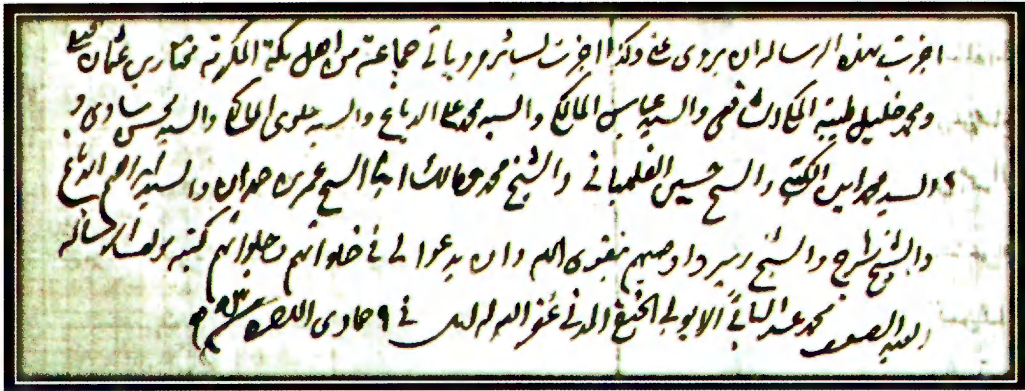 اجزت بهذه الرسالة ان يروى عني وكذا اجزت لسائر مروياتي جماعة من اهل مكة المكرمة مختار بن عثمان
ومحمد خليل طيبة المكي الشافعي والسيد عباس المالكي والسيد محمد علي الدباغ والسيد علوي المالكي والسيد محسن مساوى و
السيد محمد امين الكتبي والشيخ حسين الفلمباني والشيخ محمد وكذلك ايضا الشيخ عمر حمدان والسيد ابراهيم الدباغ
والشيخ فرج والشيخ زبير واوصيهم بتقوى الله وان يدعوا لي في خلواتهم وجلواتهم كتبه مؤلف الرسالة
العبد الضعيف محمد عبد الباقي الايوبي الحنفي المدني غفر الله له في ٩ جمادى